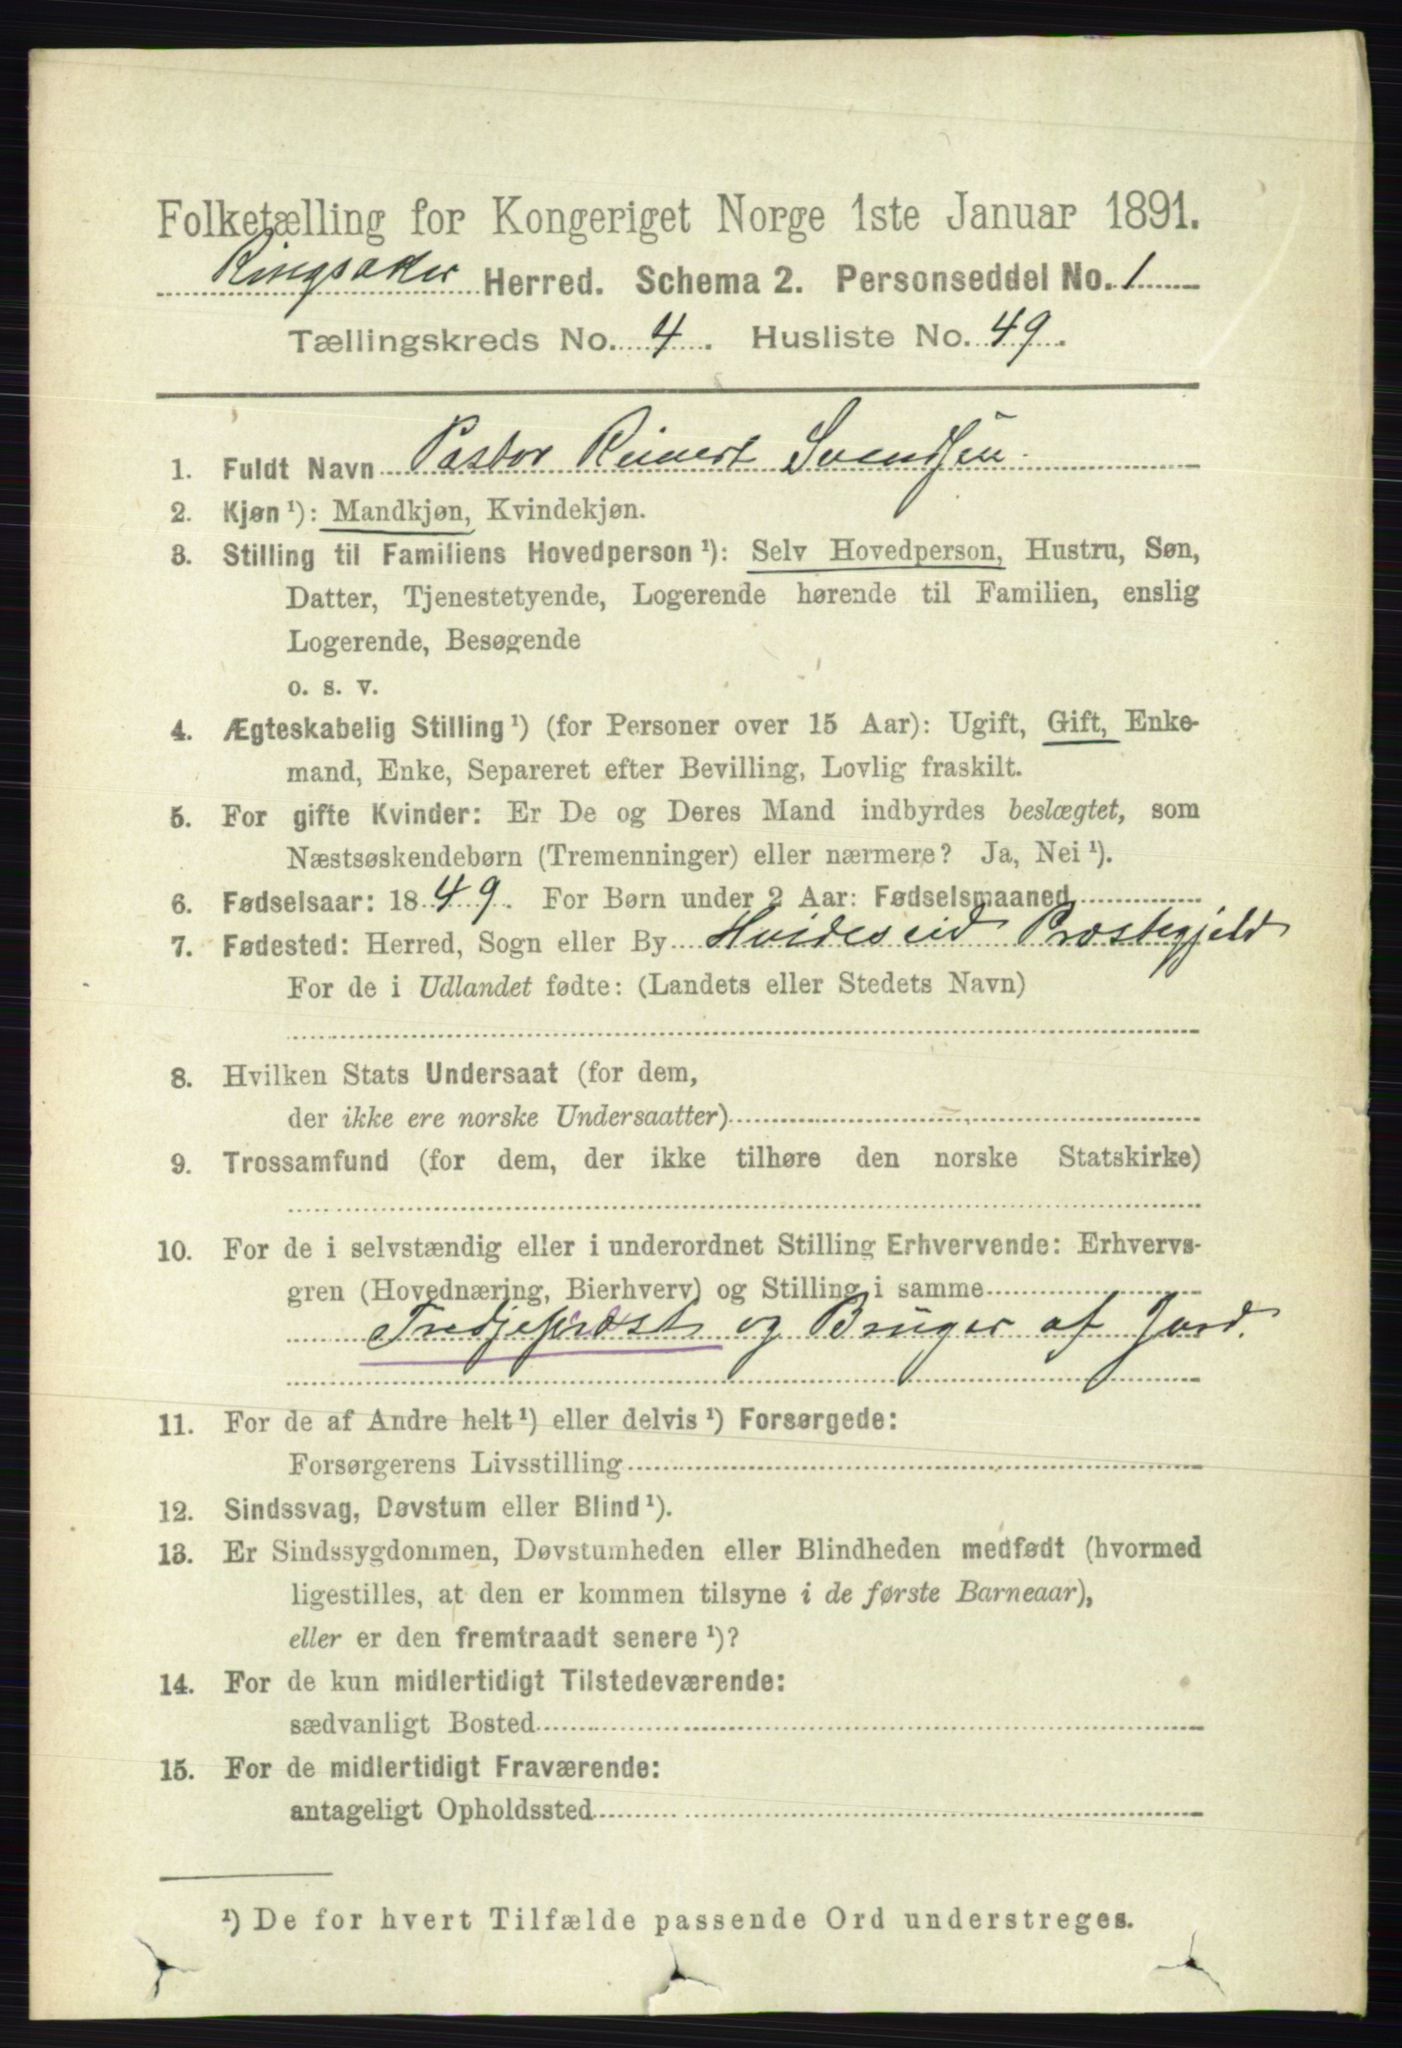 Folketælling for Kongeriget Norge 1ste Januar 1891.
Ringsaker Herred. Schema 2. Personseddel No. 1
Tællingskreds No. 4. Husliste No. 49.
1. Fuldt Navn Pastor Reinert Svendsen
2. Kjøn ¹): Mandkjøn, Kvindekjøn.
3. Stilling til Familiens Hovedperson ¹): Selv Hovedperson, Hustru, Søn,
Datter, Tjenestetyende, Logerende hørende til Familien, enslig
Logerende, Besøgende
o. s. v.
4. Ægteskabelig Stilling ¹) (for Personer over 15 Aar): Ugift, Gift, Enke-
mand, Enke, Separeret efter Bevilling, Lovlig fraskilt.
5. For gifte Kvinder: Er De og Deres Mand indbyrdes beslægtet, som
Næstsøskendebørn (Tremenninger) eller nærmere? Ja, Nei ¹).
6. Fødselsaar: 1849. For Børn under 2 Aar: Fødselsmaaned
7. Fødested: Herred, Sogn eller By Hvideseid Præstegjeld
For de i Udlandet fødte: (Landets eller Stedets Navn)
8. Hvilken Stats Undersaat (for dem,
der ikke ere norske Undersaatter)
9. Trossamfund (for dem, der ikke tilhøre den norske Statskirke)
10. For de i selvstændig eller i underordnet Stilling Erhvervende: Erhvervs-
gren (Hovednæring, Bierhverv) og Stilling i samme
Tredjepræst og Bruger af Jord.
11. For de af Andre helt ¹) eller delvis ¹) Forsørgede:
Forsørgerens Livsstilling
12. Sindssvag, Døvstum eller Blind ¹).
13. Er Sindssygdommen, Døvstumheden eller Blindheden medfødt (hvormed
ligestilles, at den er kommen tilsyne i de første Barneaar),
eller er den fremtraadt senere ¹)?
14. For de kun midlertidigt Tilstedeværende:
sædvanligt Bosted
15. For de midlertidigt Fraværende:
antageligt Opholdssted
¹) De for hvert Tilfælde passende Ord understreges.